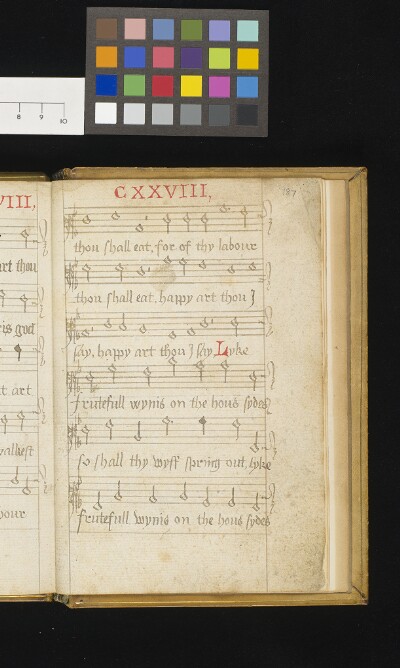 8 9 10
VIII,
art thou
is god
t art
valkest
bour
CXXVIII,
187
thou shall eat, for of thy labour
thou shall eat, happy art thou J
say, happy art thou J say, Lyke
frutefull wynis on the hous sydes
so shall thy wyff spring out, lyke
frutefull wynis on the hous sydes